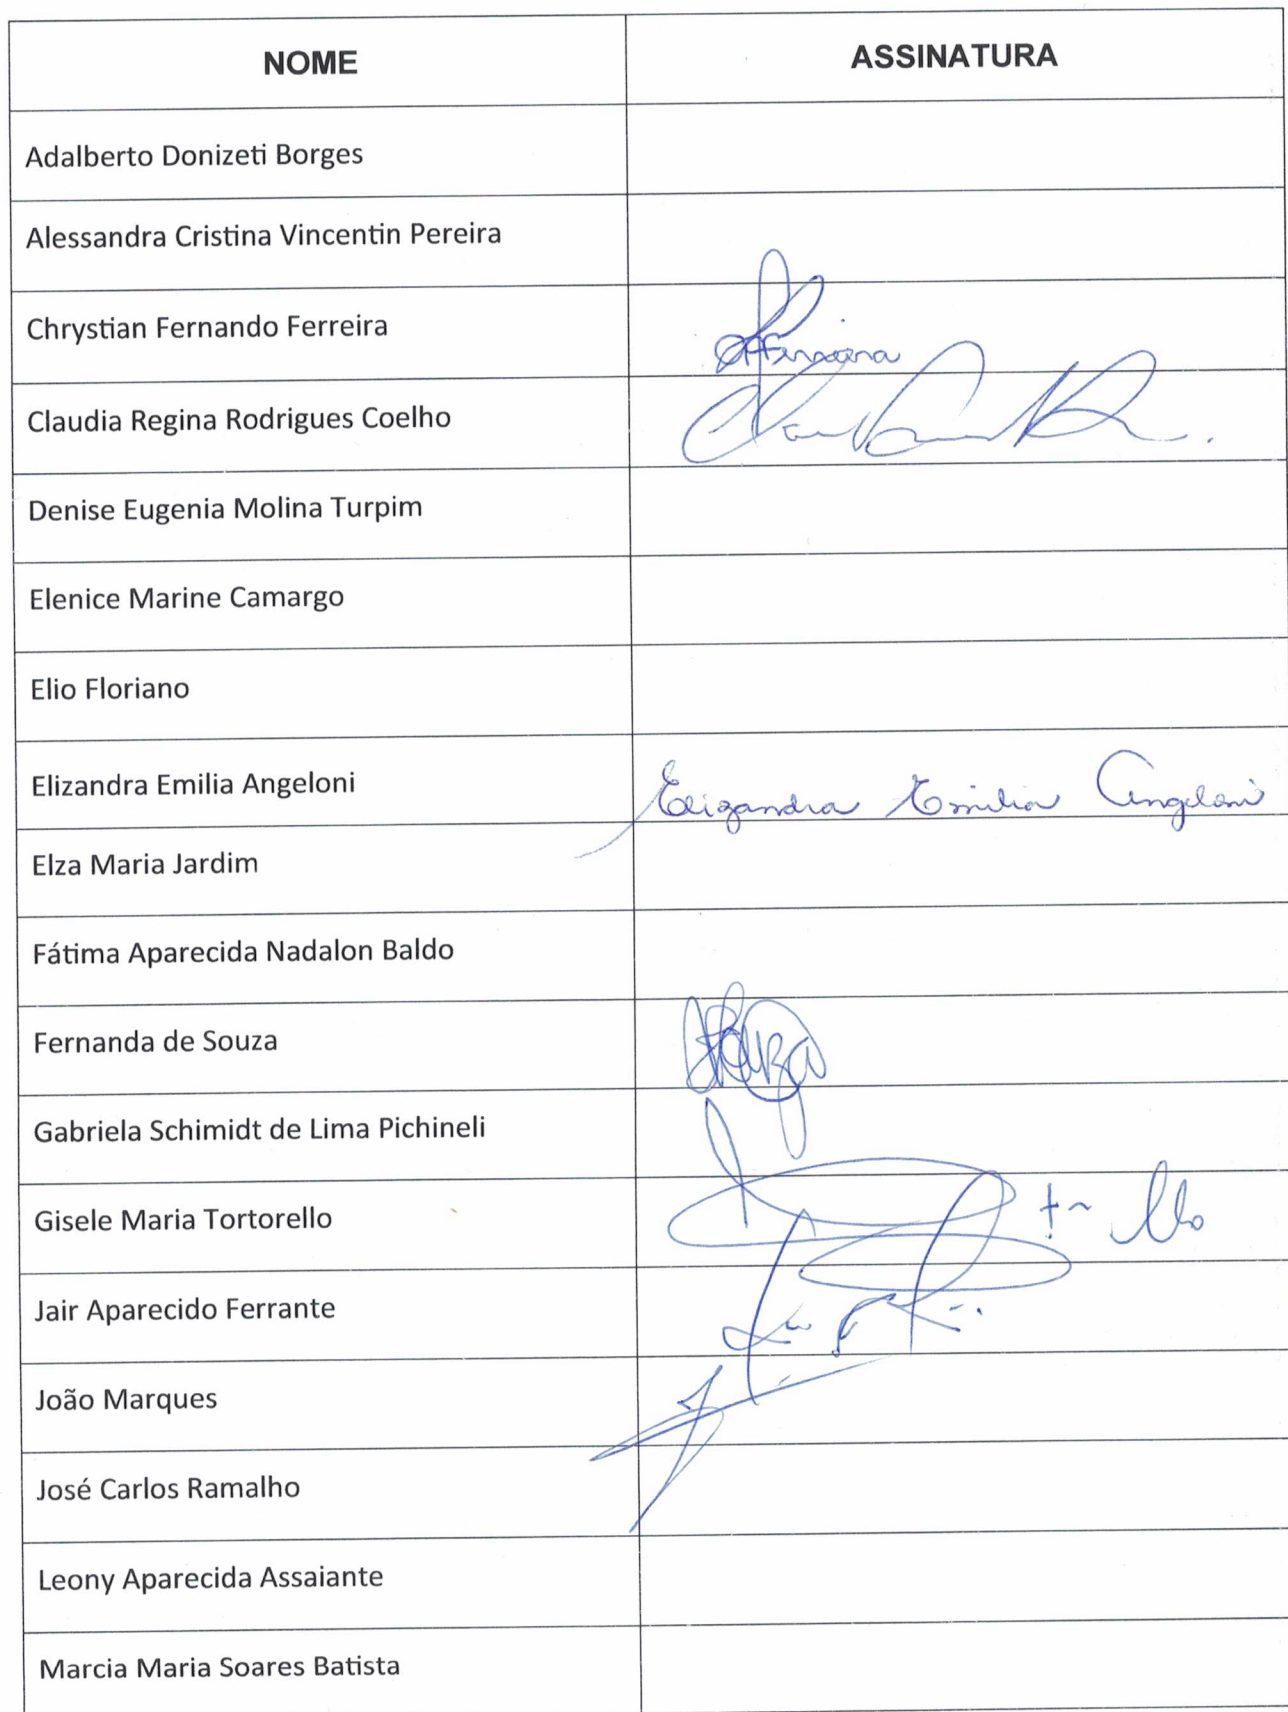 NOME ASSINATURA
Adalberto Donizeti Borges
Alessandra Cristina Vincentin Pereira
Chrystian Fernando Ferreira
Claudia Regina Rodrigues Coelho
Denise Eugenia Molina Turpim
Elenice Marine Camargo
Elio Floriano
Elizandra Emilia Angeloni Elizandra Emilia Angeloni
Elza Maria Jardim
Fátima Aparecida Nadalon Baldo
Fernanda de Souza
Gabriela Schimidt de Lima Pichineli
Gisele Maria Tortorello
Jair Aparecido Ferrante
João Marques
José Carlos Ramalho
Leony Aparecida Assaiante
Marcia Maria Soares Batista